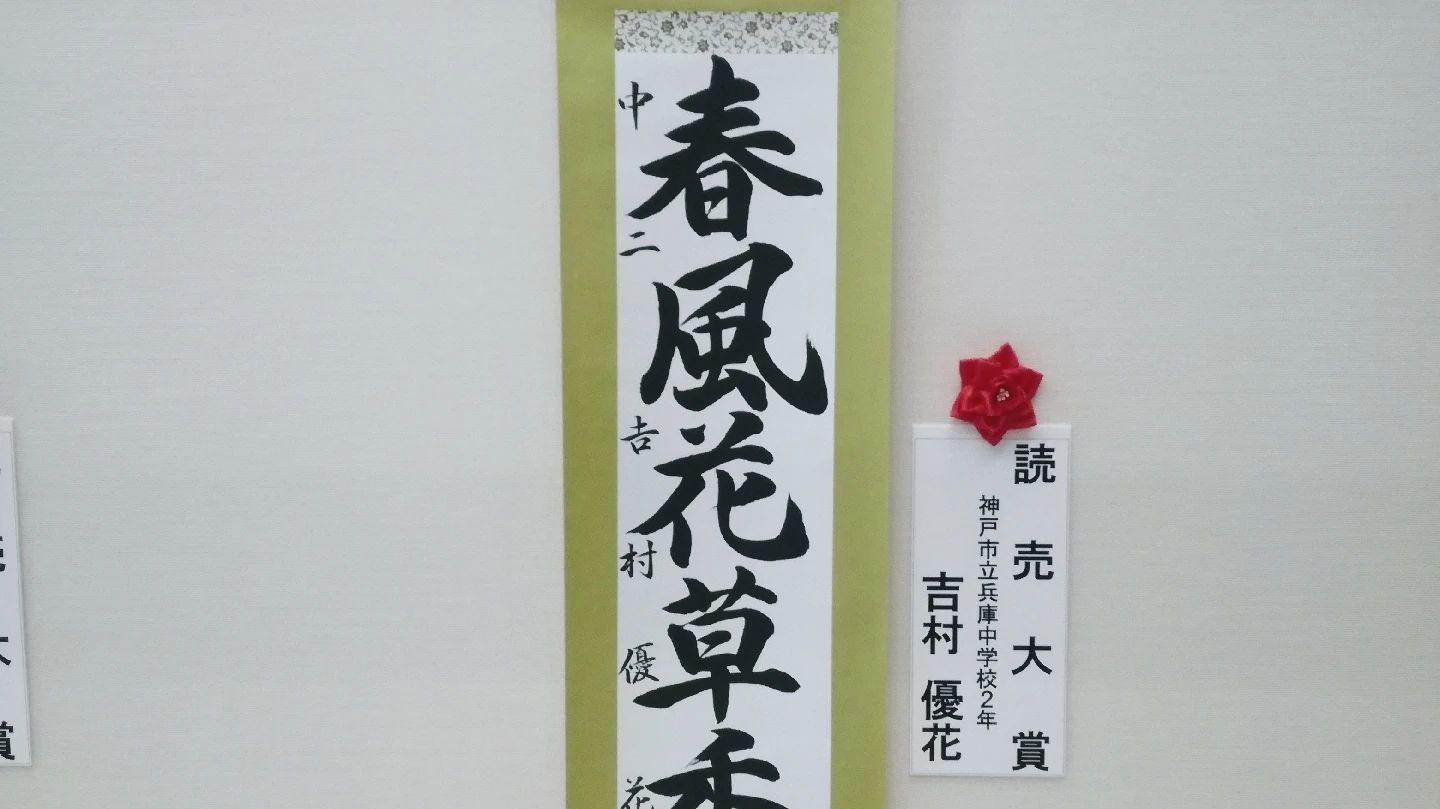 春風花草香
中二 吉村優花
読売大賞
神戸市立兵庫中学校2年
吉村 優花
大賞